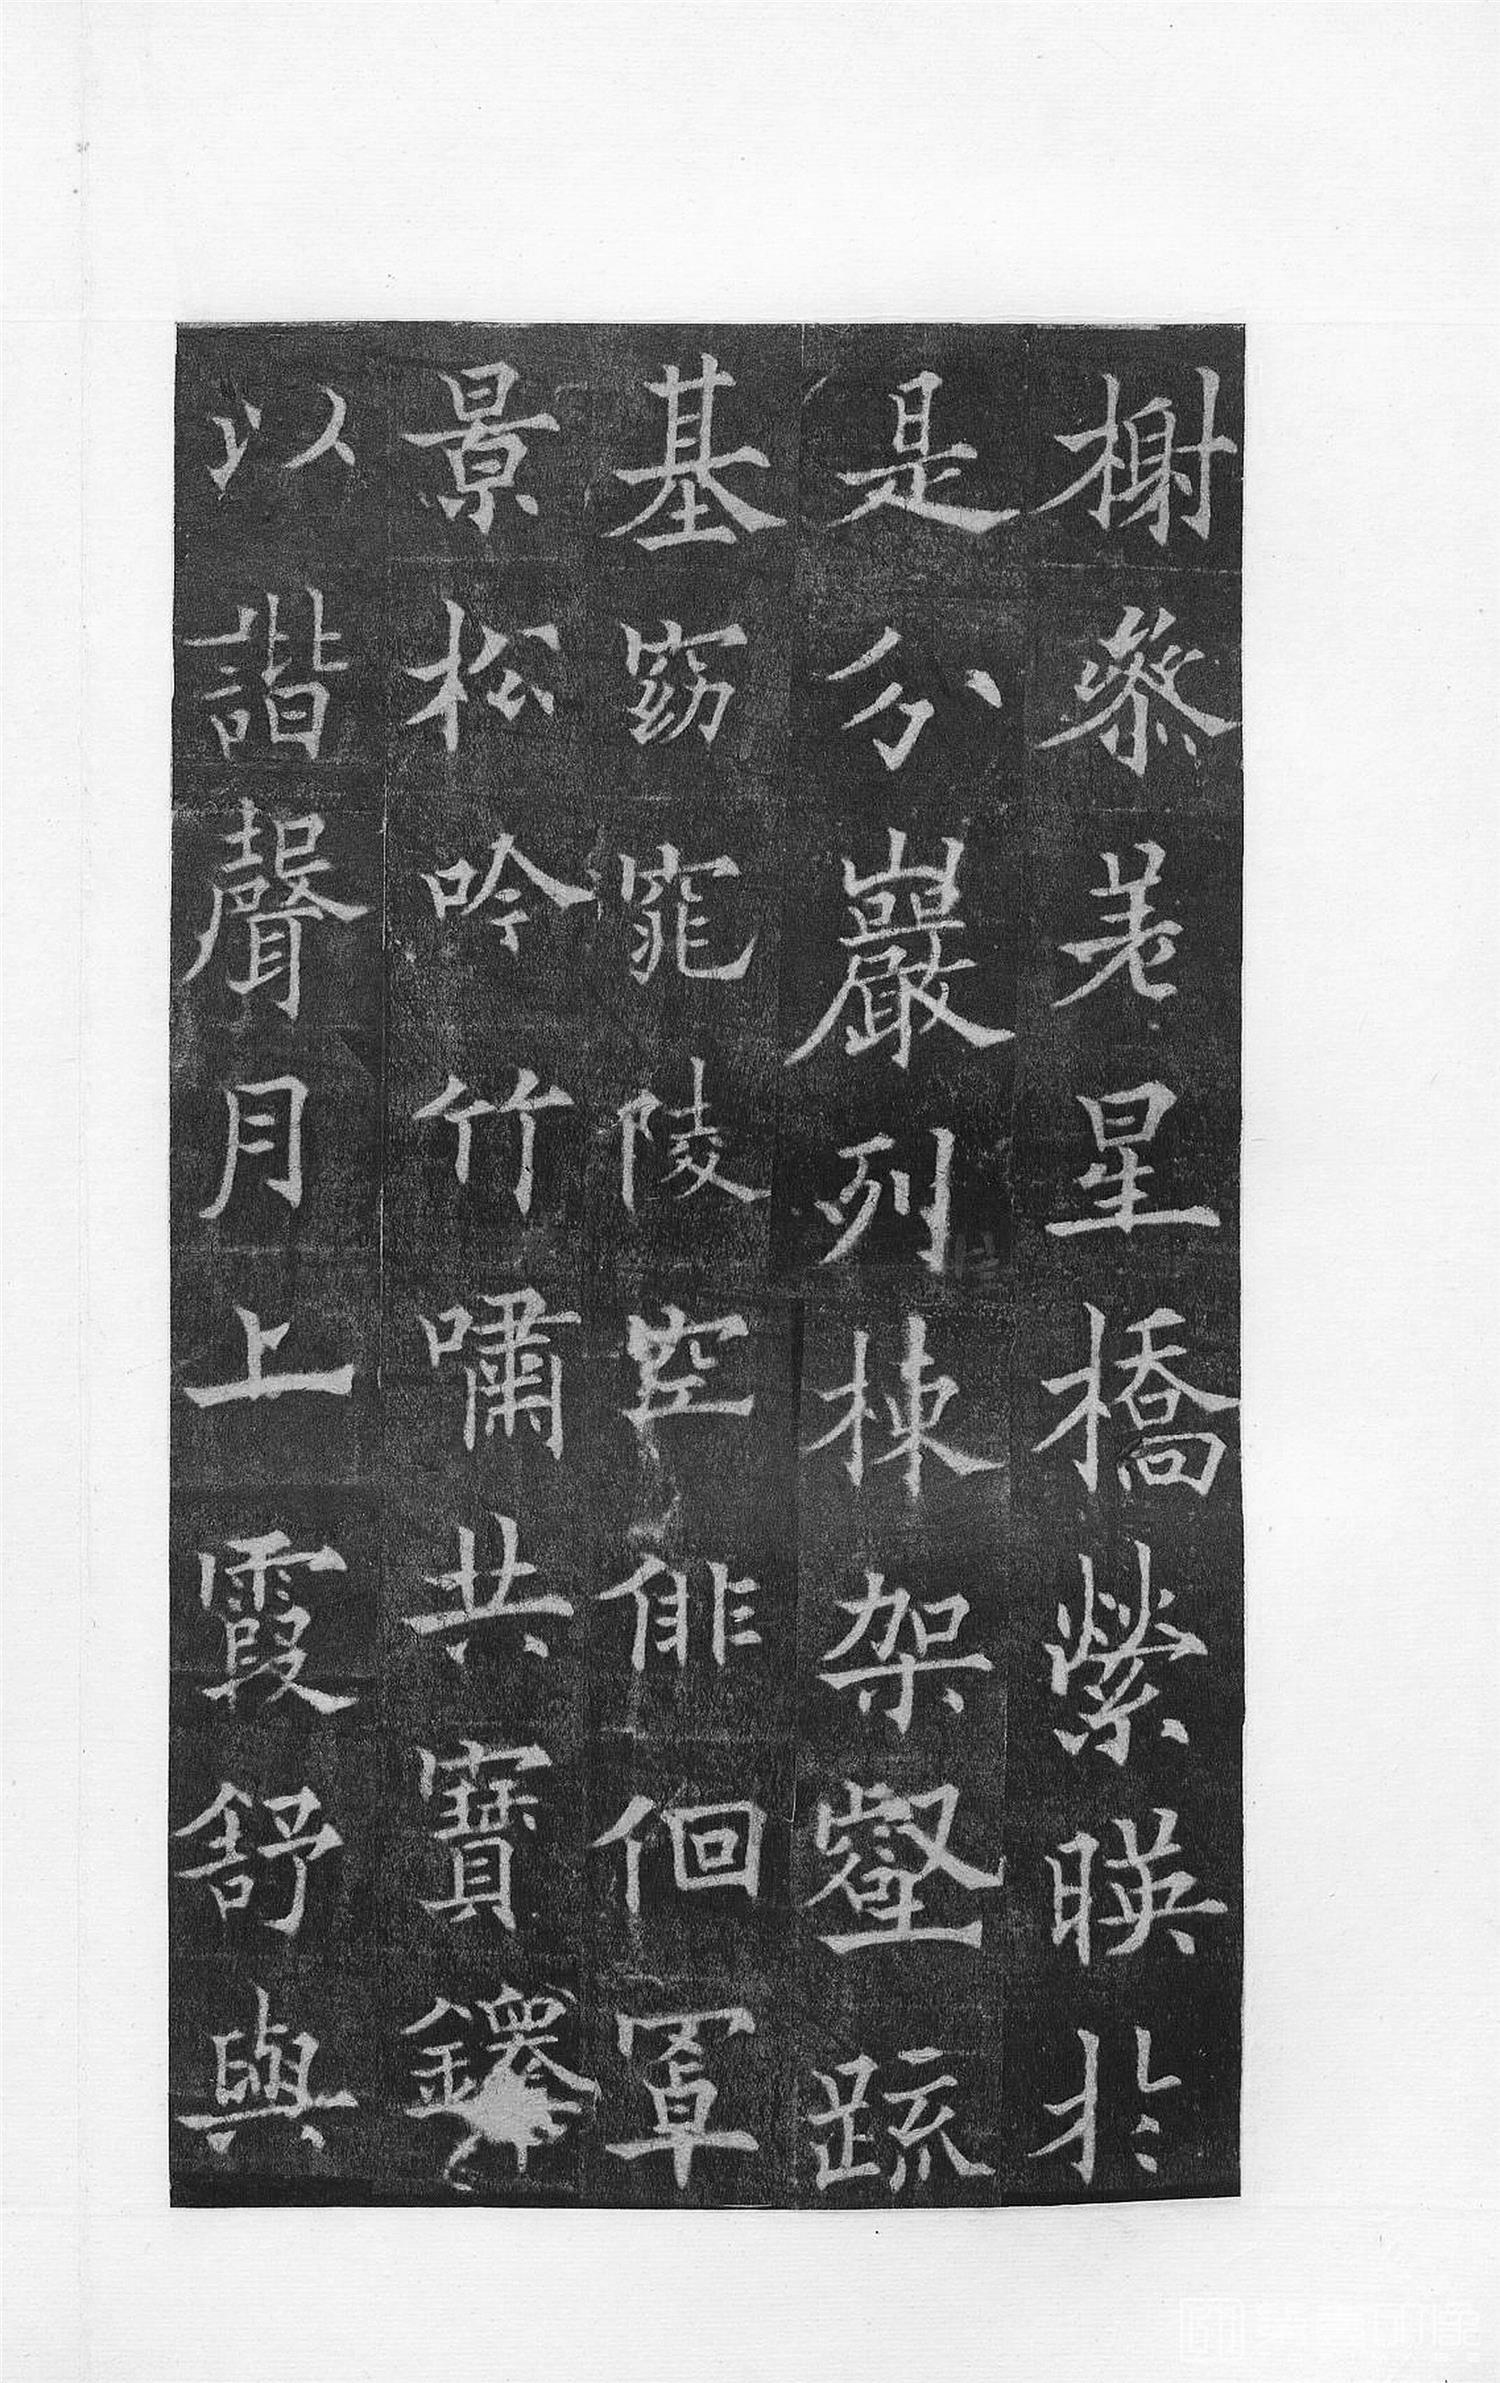 榭參差星橋縈映於
是分巖列棟架壑疏
基窈窕陵空俳佪罩
景松吟竹嘯共寶鐸
以諧聲月上霞舒與